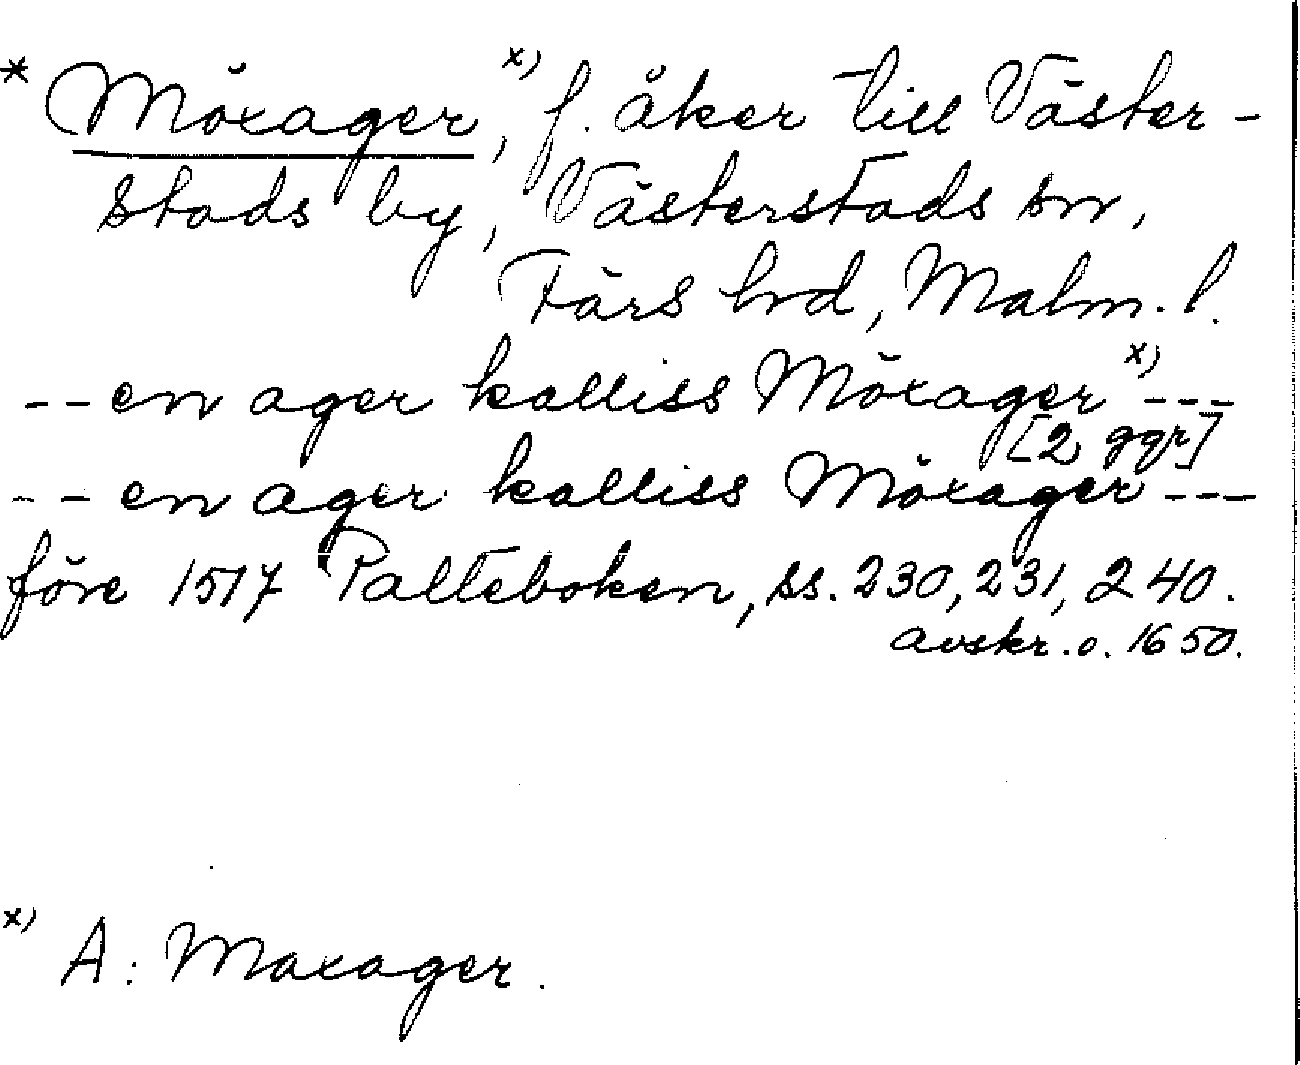 * Möxager, x) f. åker till Väster-
stads by, Västerstads sn,
Färs hd, Malm. l.
-- en ager kalliss Möxager x) ---
[2 ggr]
-- en ager kalliss Möxager ---
före 1517 Palteboken, ss. 230, 231, 240.
avskr. o. 1650.
x) A: Maxager.